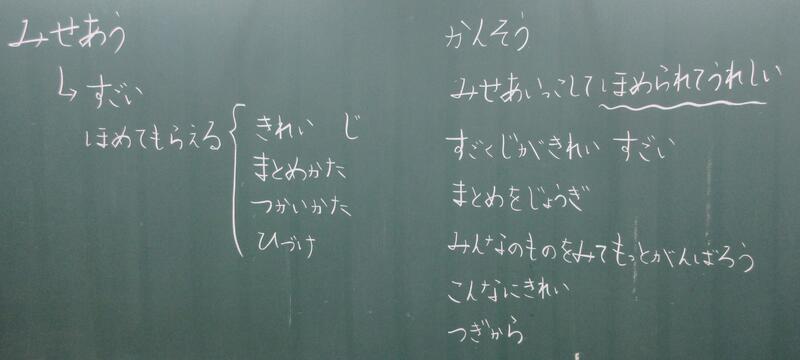 みせあう
↳ すごい
ほめてもらえる
きれい じ
まとめかた
つかいかた
ひづけ
かんそう
みせあいっこしてほめられてうれしい
すごくじがきれい すごい
まとめをじょうぎ
みんなのものをみてもっとがんばろう
こんなにきれい
つぎから